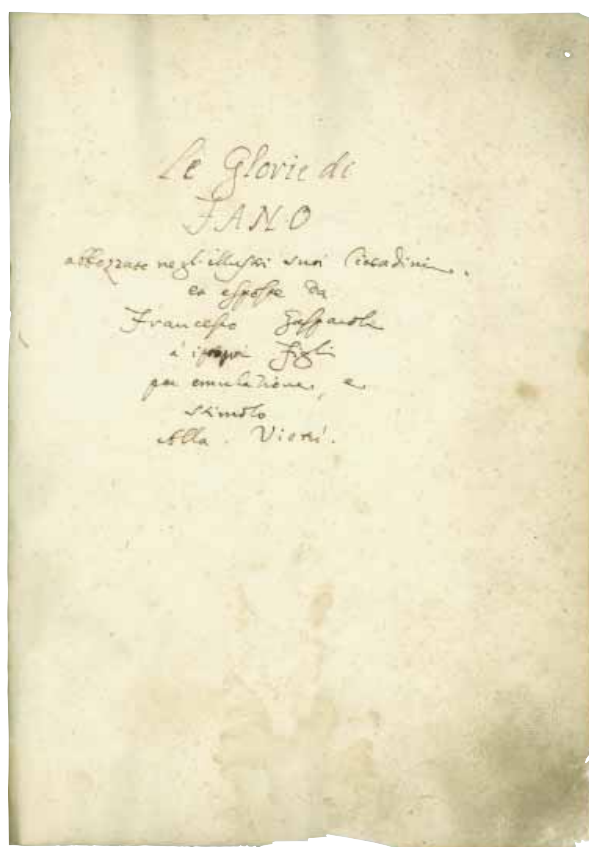 Le Glorie di
FANO
abbozzate negl'illustri suoi Cittadini.
et esposte da
Francesco Gasparoli
à i propri figli
per emulatione, e
stimolo
Alla . Virtù.